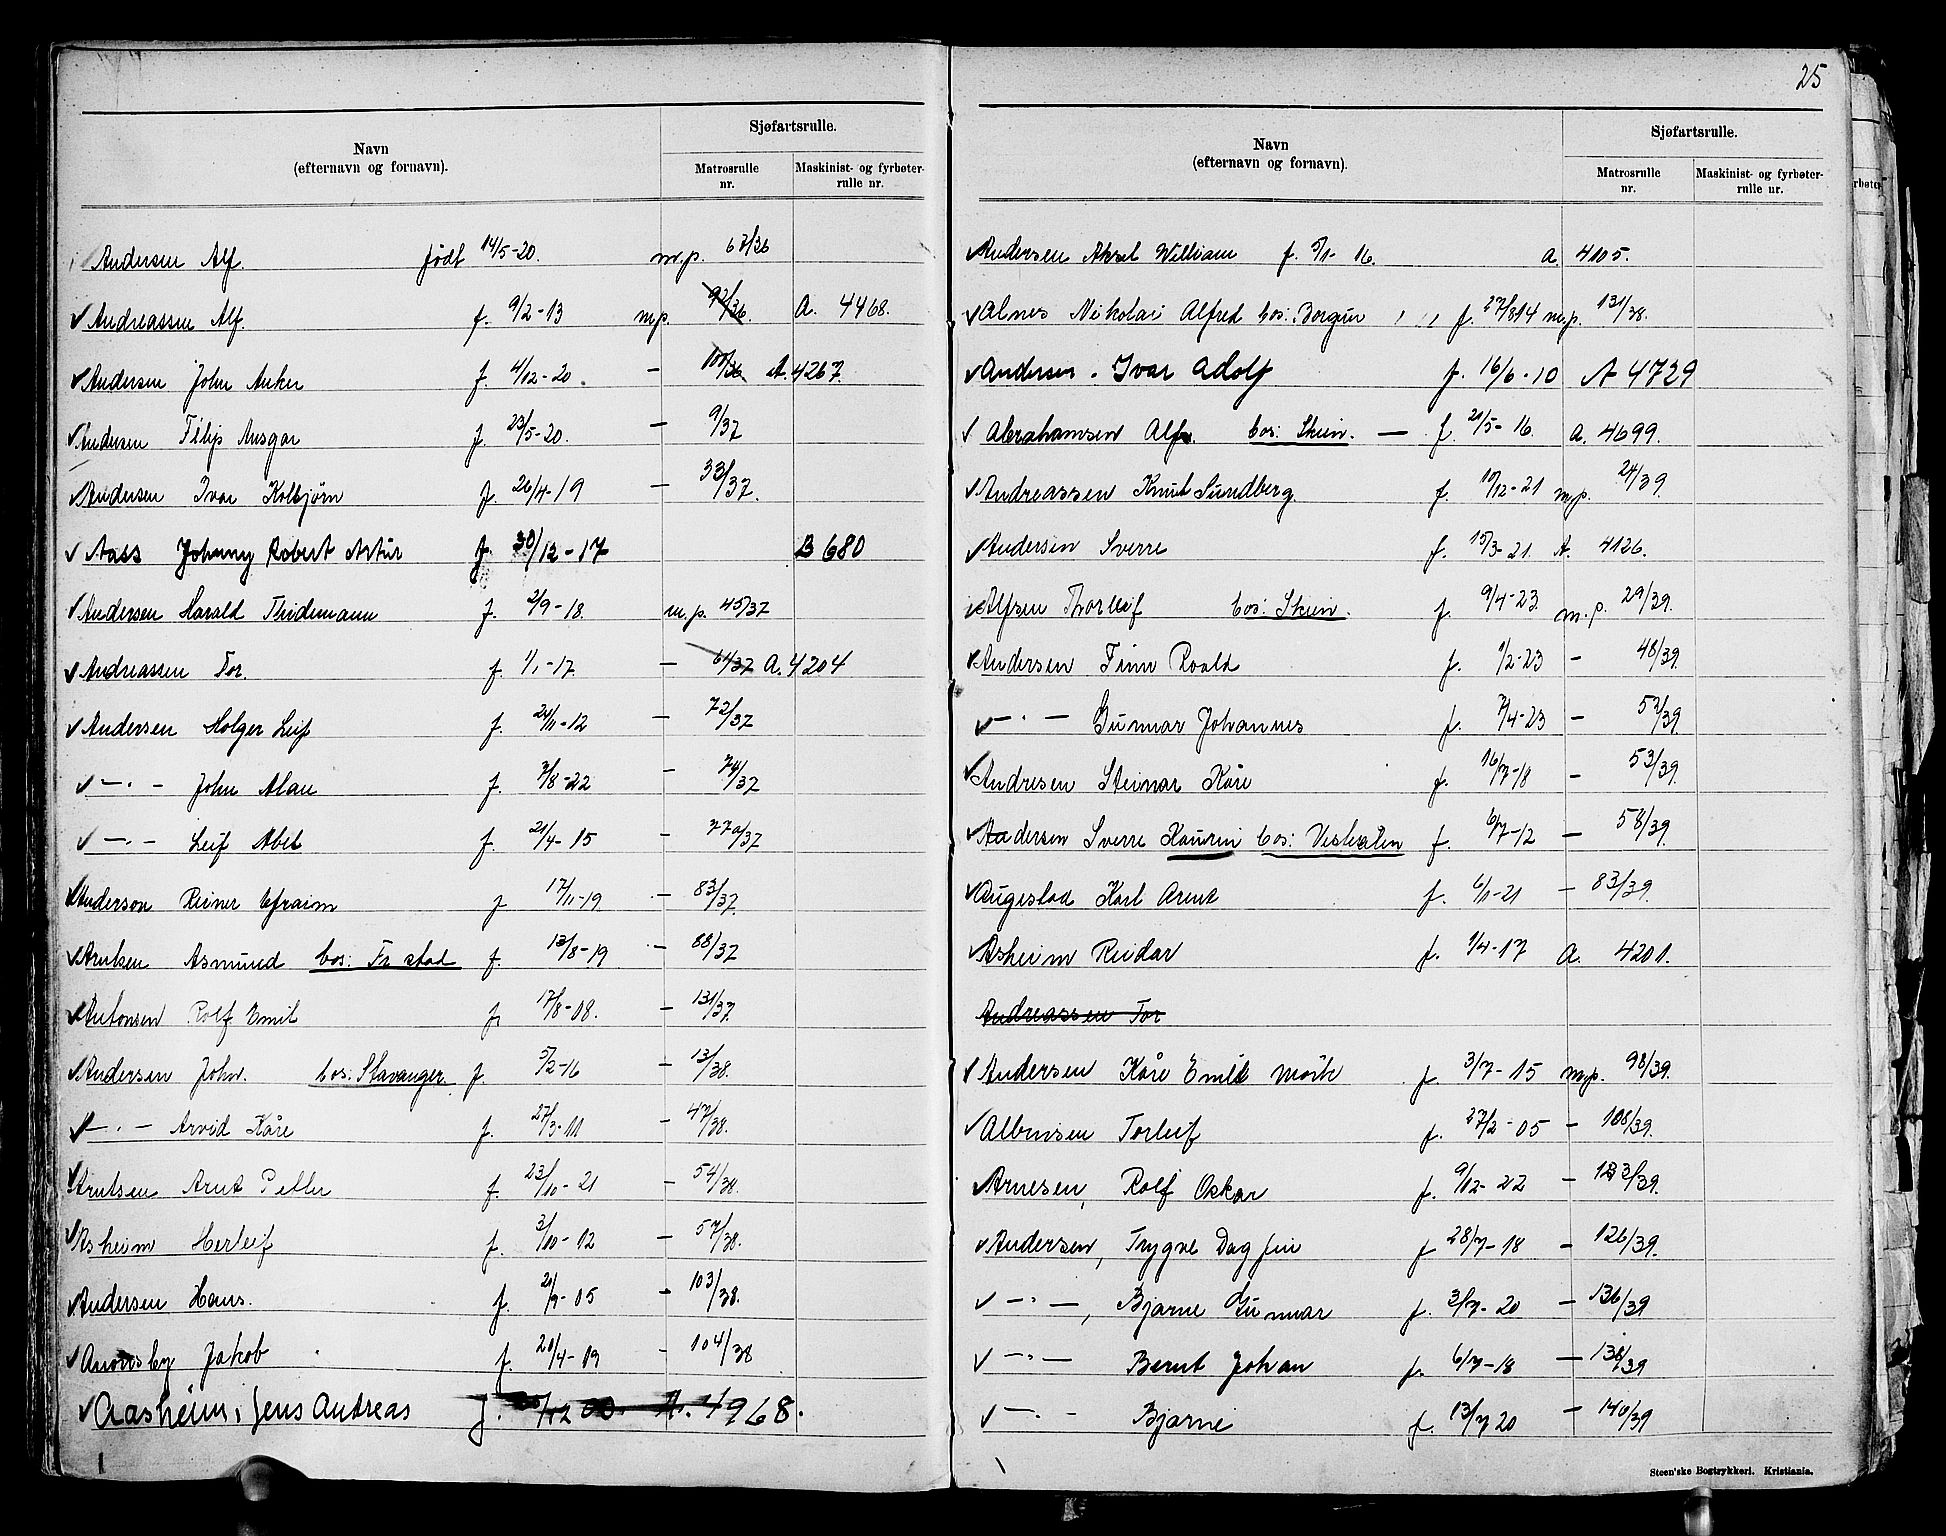 Navn
(efternavn og fornavn).
Sjøfartsrulle.
Matrosrulle
nr.
Maskinist- og fyrbøter-
rulle nr.
Andersen Alf. født 14/5-20. m.p. 67/36
Andreassen Alf. f. 9/2-13 mp. 92/36. A. 4468.
Andersen John Anker f. 4/12-20. — 100/36 A. 4267.
Andersen Filip Ansgar f. 23/5-20. — 9/37
Andersen Ivar Kolbjørn f. 26/4-19 — 33/37.
Aass Johnny Robert Artur f. 30/12-17 B 680
Andersen Harald Thidemann f. 2/9-18. m.p. 45/37
Andreassen Tor. f. 1/1-17. — 61/37 A. 4204
Andersen Holger Leif f. 24/11-12 — 72/37
—"— John Alan f. 7/8-22 — 74/37
—"— Leif Abel f. 21/4-15 — 77a/37
Anderson Reiner Efraim f 17/11-19. — 83/37.
Arntsen Asmund bos: Fr.stad f. 13/8-19 — 88/37
Antonsen Rolf Emil f. 17/8-08. — 131/37.
Andersen John. bos: Stavanger. f. 5/2-16 — 13/38.
—"— Arvid Kåre f. 27/3-11 — 47/38.
Arntsen Arnt Petter f. 23/10-21 — 54/38.
Asheim Herleif f. 3/10-12 — 57/38.
Andersen Hans. f. 21/9-05 — 103/38.
Jakob f. 20/4-19 — 104/38
Aasheim, Jens Andreas f. /12 00. A. 4968.
25
Navn
(efternavn og fornavn).
Sjøfartsrulle.
Matrosrulle
nr.
Maskinist- og fyrbøter-
rulle nr.
Andersen Aksel William f. 5/1-16. a. 4105.
Alnes Nikolai Alfred bos: Borgun f. 27/8 14 m.p. 131/38.
Andersen. Ivar Adolf f. 16/6-10 A 4729
Abrahamsen Alf. bos: Skien. — f 21/5-16. a. 4699.
Andreassen Knut Sundberg f. 10/12-21 m.p. 24/39.
Andersen Sverre f. 15/3-21. A. 4126.
Alfsen Thorleif bos: Skien. f. 9/4-23. m.p. 29/39.
Andersen Finn Roald f. 1/2-23 — 48/39.
—"— Gunnar Johannes f. 7/4-23 — 52/39
Andresen Steinar Kåre f. 16/7-18 — 53/39.
Andersen Sverre Kaurin bos: f. 6/7-12 — 58/39.
Augestad Karl Arent f. 6/1-21 — 83/39.
Asheim Reidar f. 1/4-17 A. 4201.
Andreassen Tor
Andersen Kåre Emil Mörk f. 3/7-15 m.p. 98/39.
Albensen Torleif f. 27/2-05 — 108/39.
Arnesen, Rolf Oskar f. 9/12-22 — 123/39.
Andersen, Trygve Dagfin f 28/7-18 — 126/39.
—"—, Bjarne Gunnar f. 3/7-20 — 136/39
—"— Bernt Johan f. 6/7-18 — 138/39
—"— Bjarne f. 13/7 20 — 140/39
Steen'ske Bogtrykkeri. Kristiania.